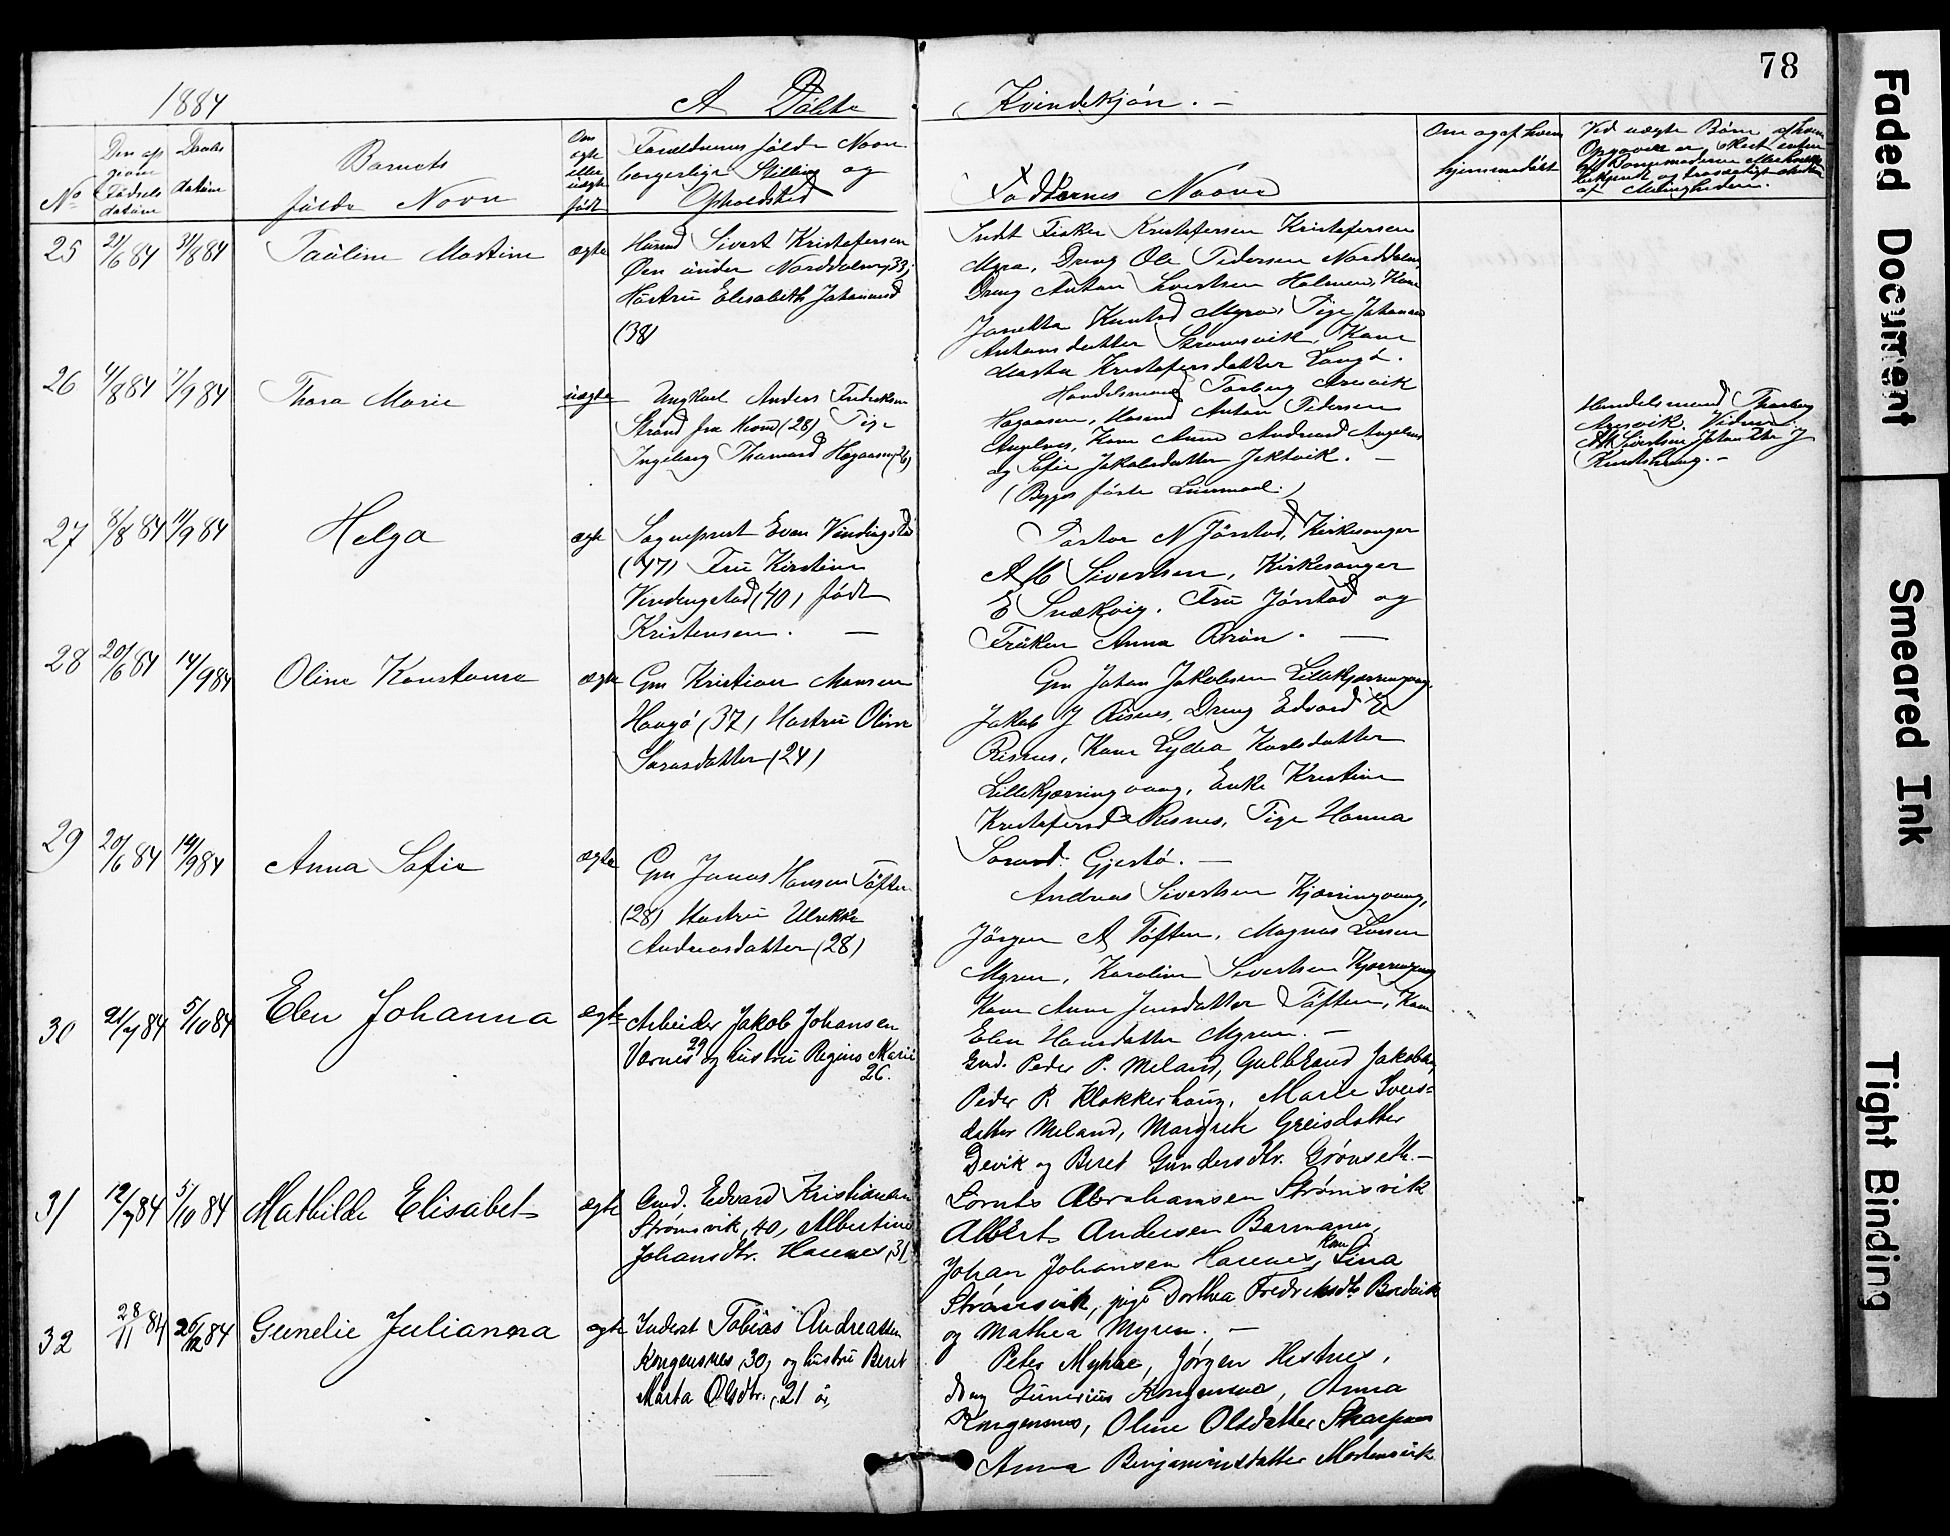 78
1884
A Døbte
Kvindekjøn. –
No
Den an
givne
Fødsels
datum
Daabs
datum
Barnets
fulde Navn
Om
ægte
eller
uægte
født
Forældrenes fulde Navn
borgerlige Stilling og
Opholdsted
Faddernes Navne
Om og af hvem
hjemmedøbt
Ved uægte Børn, af hvem
Opgaven er skeet enten
25
21/6 84
31/8 84
Pauline Martine
ægte
Husmd Sivert Kristofersen
Øen under Norddalen, 33,
Hustru Elisabeth Johannesd
(38)
Indst Fisker Kristofersen Kristofersen
Myra, Dreng Ole Pedersen Norddalen,
Dreng Anton Sivertsen Holmen, Kone
Janetta Knutsd Myra, Pige Johanna
Antonsdatter Strømsvik, Kone
Marta Kristofersdatter Langø.
26
4/8 84
7/9 84
Thora Marie
uægte
Ungkarl Anders Fredriksen
Strand fra Hevne (28) Pige
Ingeborg Thomasd Hagaasen (26)
Handelsmand Torberg Aresvik
Hagaasen, Husmd Anton Pedersen
Angelnes, Kone Anne Andreasd Angelnes
og Sofie Jakobsdatter Jektvik. –
(Begges første Leiermaal.)
Handelsmand Thorberg
Aresvik. Vidner
AM Sivertsen Johan Chr J
Klintehaug. –
27
8/8 84
11/9 84
Helga
ægte
Sogneprest Even Vindingstad
(47) Fru Kirstine
Vindingstad (40) født
Kristensen. –
Pastor N Jørstad, Kirkesanger
A M Sivertsen, Kirkesanger
E Snekvig, Fru Jørstad og
Frøken Anna Brun. –
28
20/6 84
14/9 84
Oline Konstanse
ægte
Gm Kristian Monsen
Havgø (37) Hustru Oline
Sarasdatter (24)
Gm Johan Jakobsen Lillekjærringvaag,
Jakob J Risnes, Dreng Edvard E
Risnes, Kone Lydea Karlsdatter
Lillekjærringvaag, Enke Kristine
Kristofersd Risnes, Pige Hanna
Sarasd. Gjestø. –
29
20/6 84
14/9 84
Anna Sofie
ægte
Gm Jonas Hansen Tøften
(28) Hustru Ulrikke
Andreasdatter (28)
Andreas Sivertsen Kjærringvaag,
Jørgen A Tøften, Magnus Larsen
Myren, Karoline Sivertsen Kjærringvaag
Kone Anne Jensdatter Tøften, Kone
Elen Hansdatter Myren. –
30
21/7 84
5/10 84
Elen Johanna
ægte
Arbeider Jakob Johansen
Værnes 29 og hustru Regine Marie
26.
Gmd. Peder P. Meland, Gulbrand Jakobsen,
Peder P. Klokkerhaug, Marie Ivers-
datter Meland, Margrete Greisdatter
Devik og Beret Gundersdtr. Grønseth. –
31
12/7 84
5/10 84
Mathilde Elisabet
ægte
Gmd. Edvard Kristiansen
Strømsvik, 40, Albertine
Johansdtr. Havnes, 31
Lornts Abrahamsen Strømsvik
Albert Andersen Barmanen,
Johan Johansen Havnes, Kone Lina
Strømsvik, pige Dorthea Fredriksdtr Bordvik
og Mathea Myren. –
32
28/11 84
26/12 84
Gunelie Julianna
ægte
Inderst Tobias Andreassen
Kongensnes, 30, og hustru Beret
Marta Olsdtr., 21 år,
Peter Myhre, Jørgen Hestnes,
dreng Gunerius Kongensnes, Anna
Kongensnes, Oline Olsdatter Skarpnes
Anna Benjaminsdatter Mortensvik
Faded Document
Smeared Ink
Tight Binding